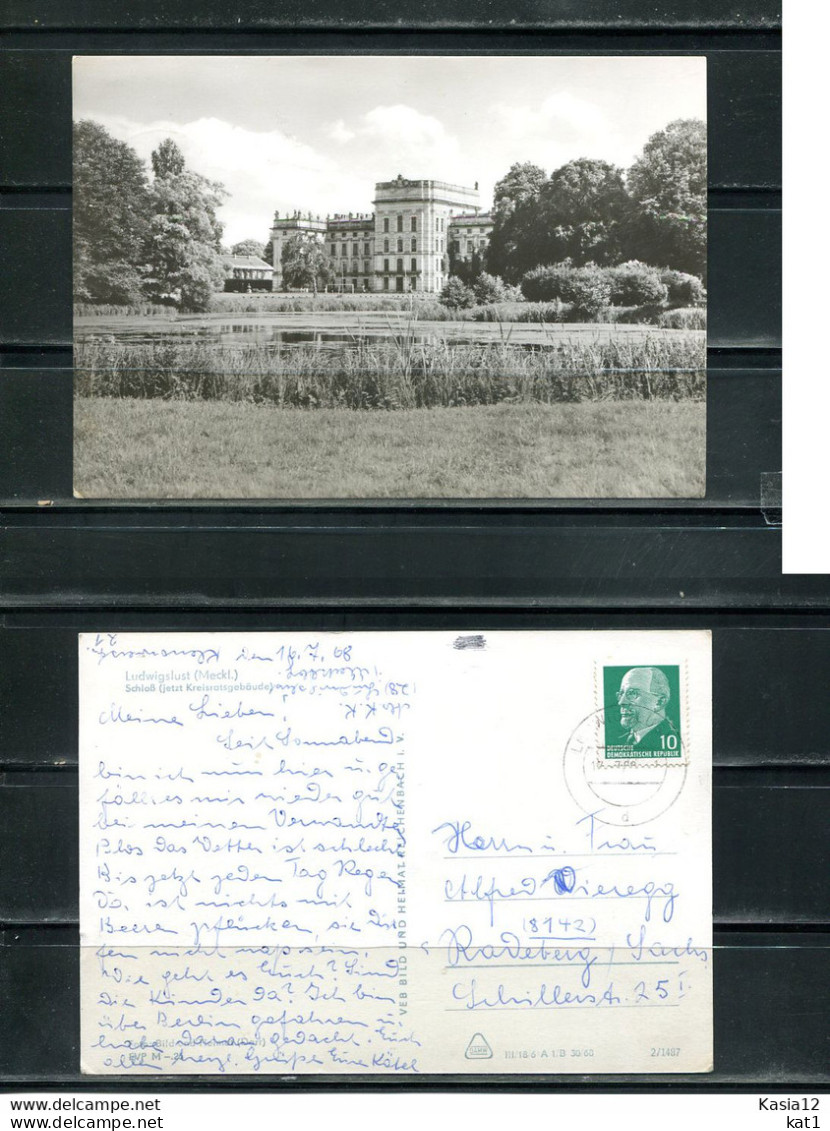 den 16.7.68
21
Ludwigslust (Meckl.)
Schloß (jetzt Kreisratsgebäude)
(28)
Meine Lieben,
Seit Sonnabend
bin ich nun hier u. ge-
fällt es mir wieder gut
bei meinen Verwandte
Blos das Wetter ist schlecht
Bis jetzt jeden Tag Regen
Da ist nichts mit
Beeren pflücken, sie dür-
fen nicht naß sein.
Wie geht es Euch? Sind
die Kinder da? Ich bin
über Berlin gefahren u.
habe daran gedacht. Euch
allen herzl. Grüße Eure Kätel
EVP M -,25
VEB BILD UND HEIMAT REICHENBACH I. V.
10
DEUTSCHE
DEMOKRATISCHE REPUBLIK
Herrn u. Frau
Alfred Vieregg
(8142)
Radeberg / Sachs
Schillerstr. 25 I
III/18/6 A 1/B 30/68
2/1487
Kasia12
kat1
DELCAMPE.NET